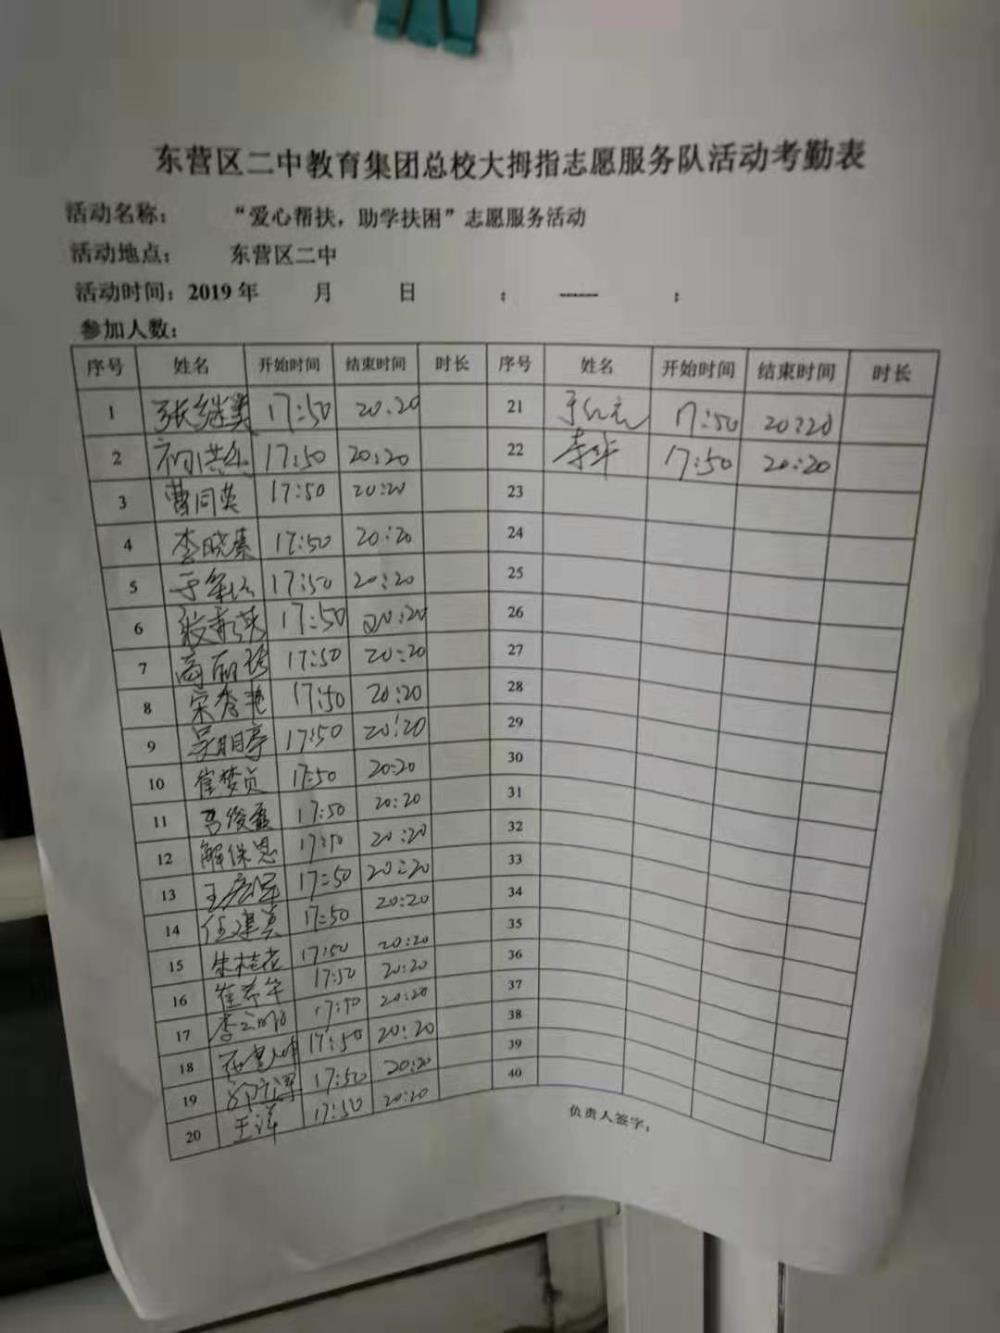 东营区二中教育集团总校大拇指志愿服务队活动考勤表
活动名称： “爱心帮扶，助学扶困”志愿服务活动
活动地点： 东营区二中
活动时间：2019 年 月 日 ： —— ：
参加人数：
序号 姓名 开始时间 结束时间 时长 序号 姓名 开始时间 结束时间 时长
1 张继美 17:50 20:20 21 17:50 20:20
2 17:50 20:20 22 李华 17:50 20:20
3 曹同英 17:50 20:20 23
4 李晓燕 17:50 20:20 24
5 17:50 20:20 25
6 17:50 20:20 26
7 17:50 20:20 27
8 宋秀艳 17:50 20:20 28
9 吴明亭 17:50 20:20 29
10 崔梦贞 17:50 20:20 30
11 吕俊霞 17:50 20:20 31
12 解保恩 17:50 20:20 32
13 王宏军 17:50 20:20 33
14 伍建美 17:50 20:20 34
15 朱桂花 17:50 20:20 35
16 17:50 20:20 36
17 17:50 20:20 37
18 17:50 20:20 38
19 17:50 20:20 39
20 王洋 17:50 20:20 40
负责人签字：